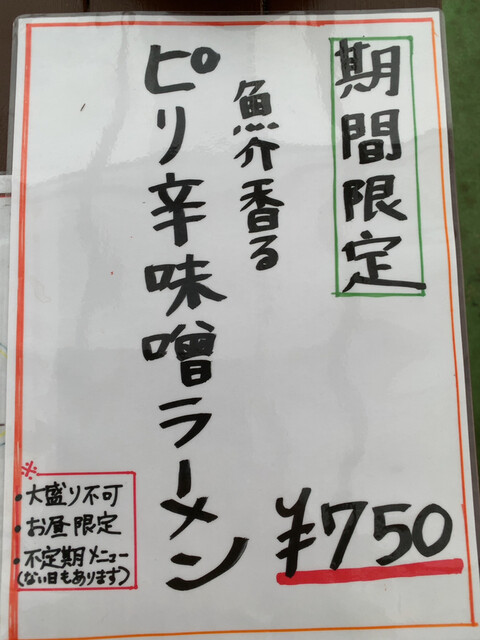 期間限定
魚介香る
ピリ辛味噌ラーメン
¥750
※
・大盛り不可
・お昼限定
・不定期メニュー
(ない日もあります)